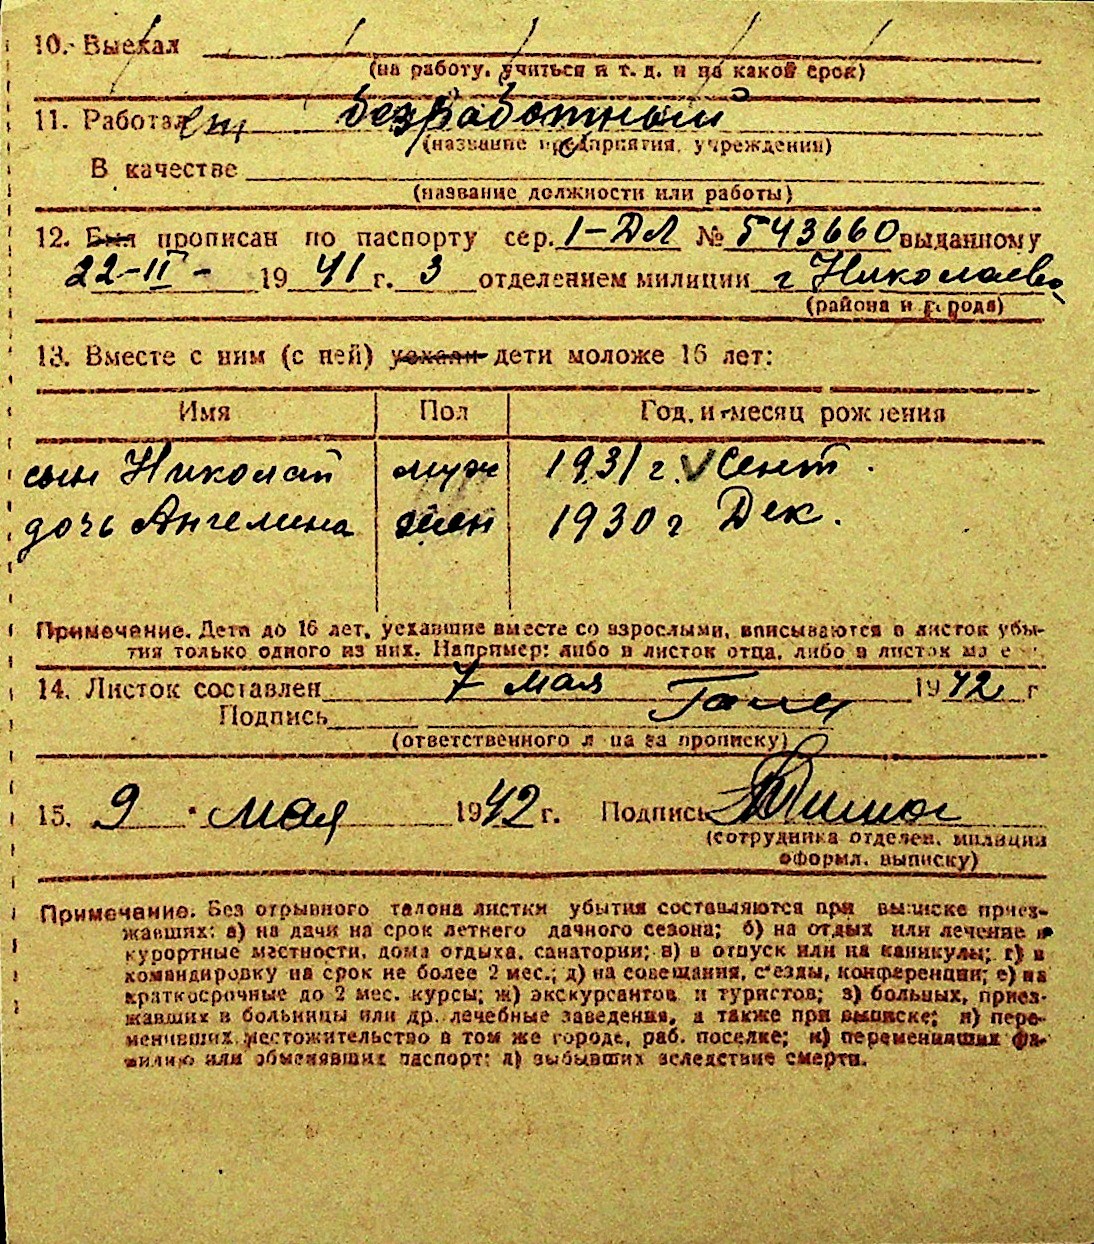 10. Выехал
(на работу, учиться и т. д. и на какой срок)
11. Работает безработный
(название предприятия, учреждения)
В качестве
(название должности или работы)
12. Был прописан по паспорту сер. 1-ДЛ № 543660 выданному
22-II- 1941 г. 3 отделением милиции г Николаева
(района и города)
13. Вместе с ним (с ней) уехали дети моложе 16 лет:
Имя Пол Год, и месяц рождения
сын Николай муж 1931 г. Сент.
дочь Ангелина жен 1930 г Дек.
Примечание. Дети до 16 лет, уехавшие вместе со взрослыми, вписываются в листок убы-
тия только одного из них. Например: либо в листок отца, либо в листок ма
14. Листок составлен 7 мая 1942 г
Подпись
(ответственного лица за прописку)
15. 9 мая 1942 г. Подпись
(сотрудника отделен. милиции
оформл. выписку)
Примечание. Без отрывного талона листки убытия составляются при выписке приез-
жавших: а) на дачи на срок летнего дачного сезона; б) на отдых или лечение в
курортные местности, дома отдыха, санатории; в) в отпуск или на каникулы; г) в
командировку на срок не более 2 мес.; д) на совещания, съезды, конференции; е) на
краткосрочные до 2 мес. курсы; ж) экскурсантов и туристов; з) больных, приез-
жавших в больницы или др. лечебные заведения, а также при выписке; и) пере-
менивших местожительство в том же городе, раб. поселке; к) переменивших фа-
милию или обменявших паспорт; л) выбывших вследствие смерти.